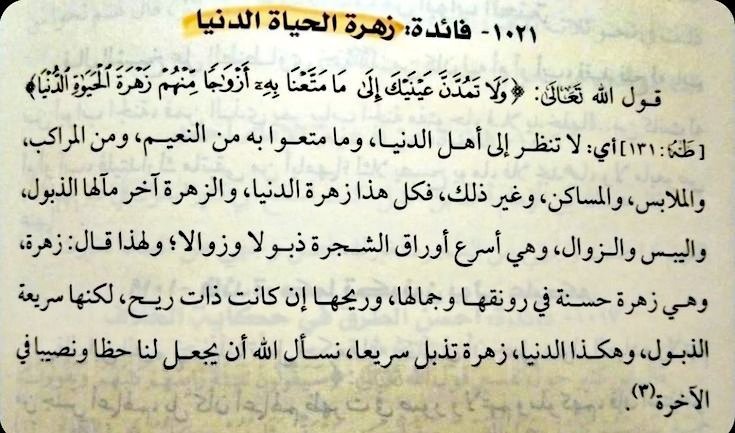 ١٠٢١- فائدة: زهرة الحياة الدنيا
قول الله تَعَالَى: ﴿وَلَا تَمُدَّنَّ عَيْنَيْكَ إِلَىٰ مَا مَتَّعْنَا بِهِۦٓ أَزْوَٰجًا مِّنْهُمْ زَهْرَةَ ٱلْحَيَوٰةِ ٱلدُّنْيَا﴾
[طه: ١٣١] أي: لا تنظر إلى أهل الدنيا، وما متعوا به من النعيم، ومن المراكب،
والملابس، والمساكن، وغير ذلك، فكل هذا زهرة الدنيا، والزهرة آخر مآلها الذبول،
واليبس والزوال، وهي أسرع أوراق الشجرة ذبولا وزوالا؛ ولهذا قال: زهرة،
وهي زهرة حسنة في رونقها وجمالها، وريحها إن كانت ذات ريح، لكنها سريعة
الذبول، وهكذا الدنيا، زهرة تذبل سريعا، نسأل الله أن يجعل لنا حظا ونصيبا في
الآخرة(٣).